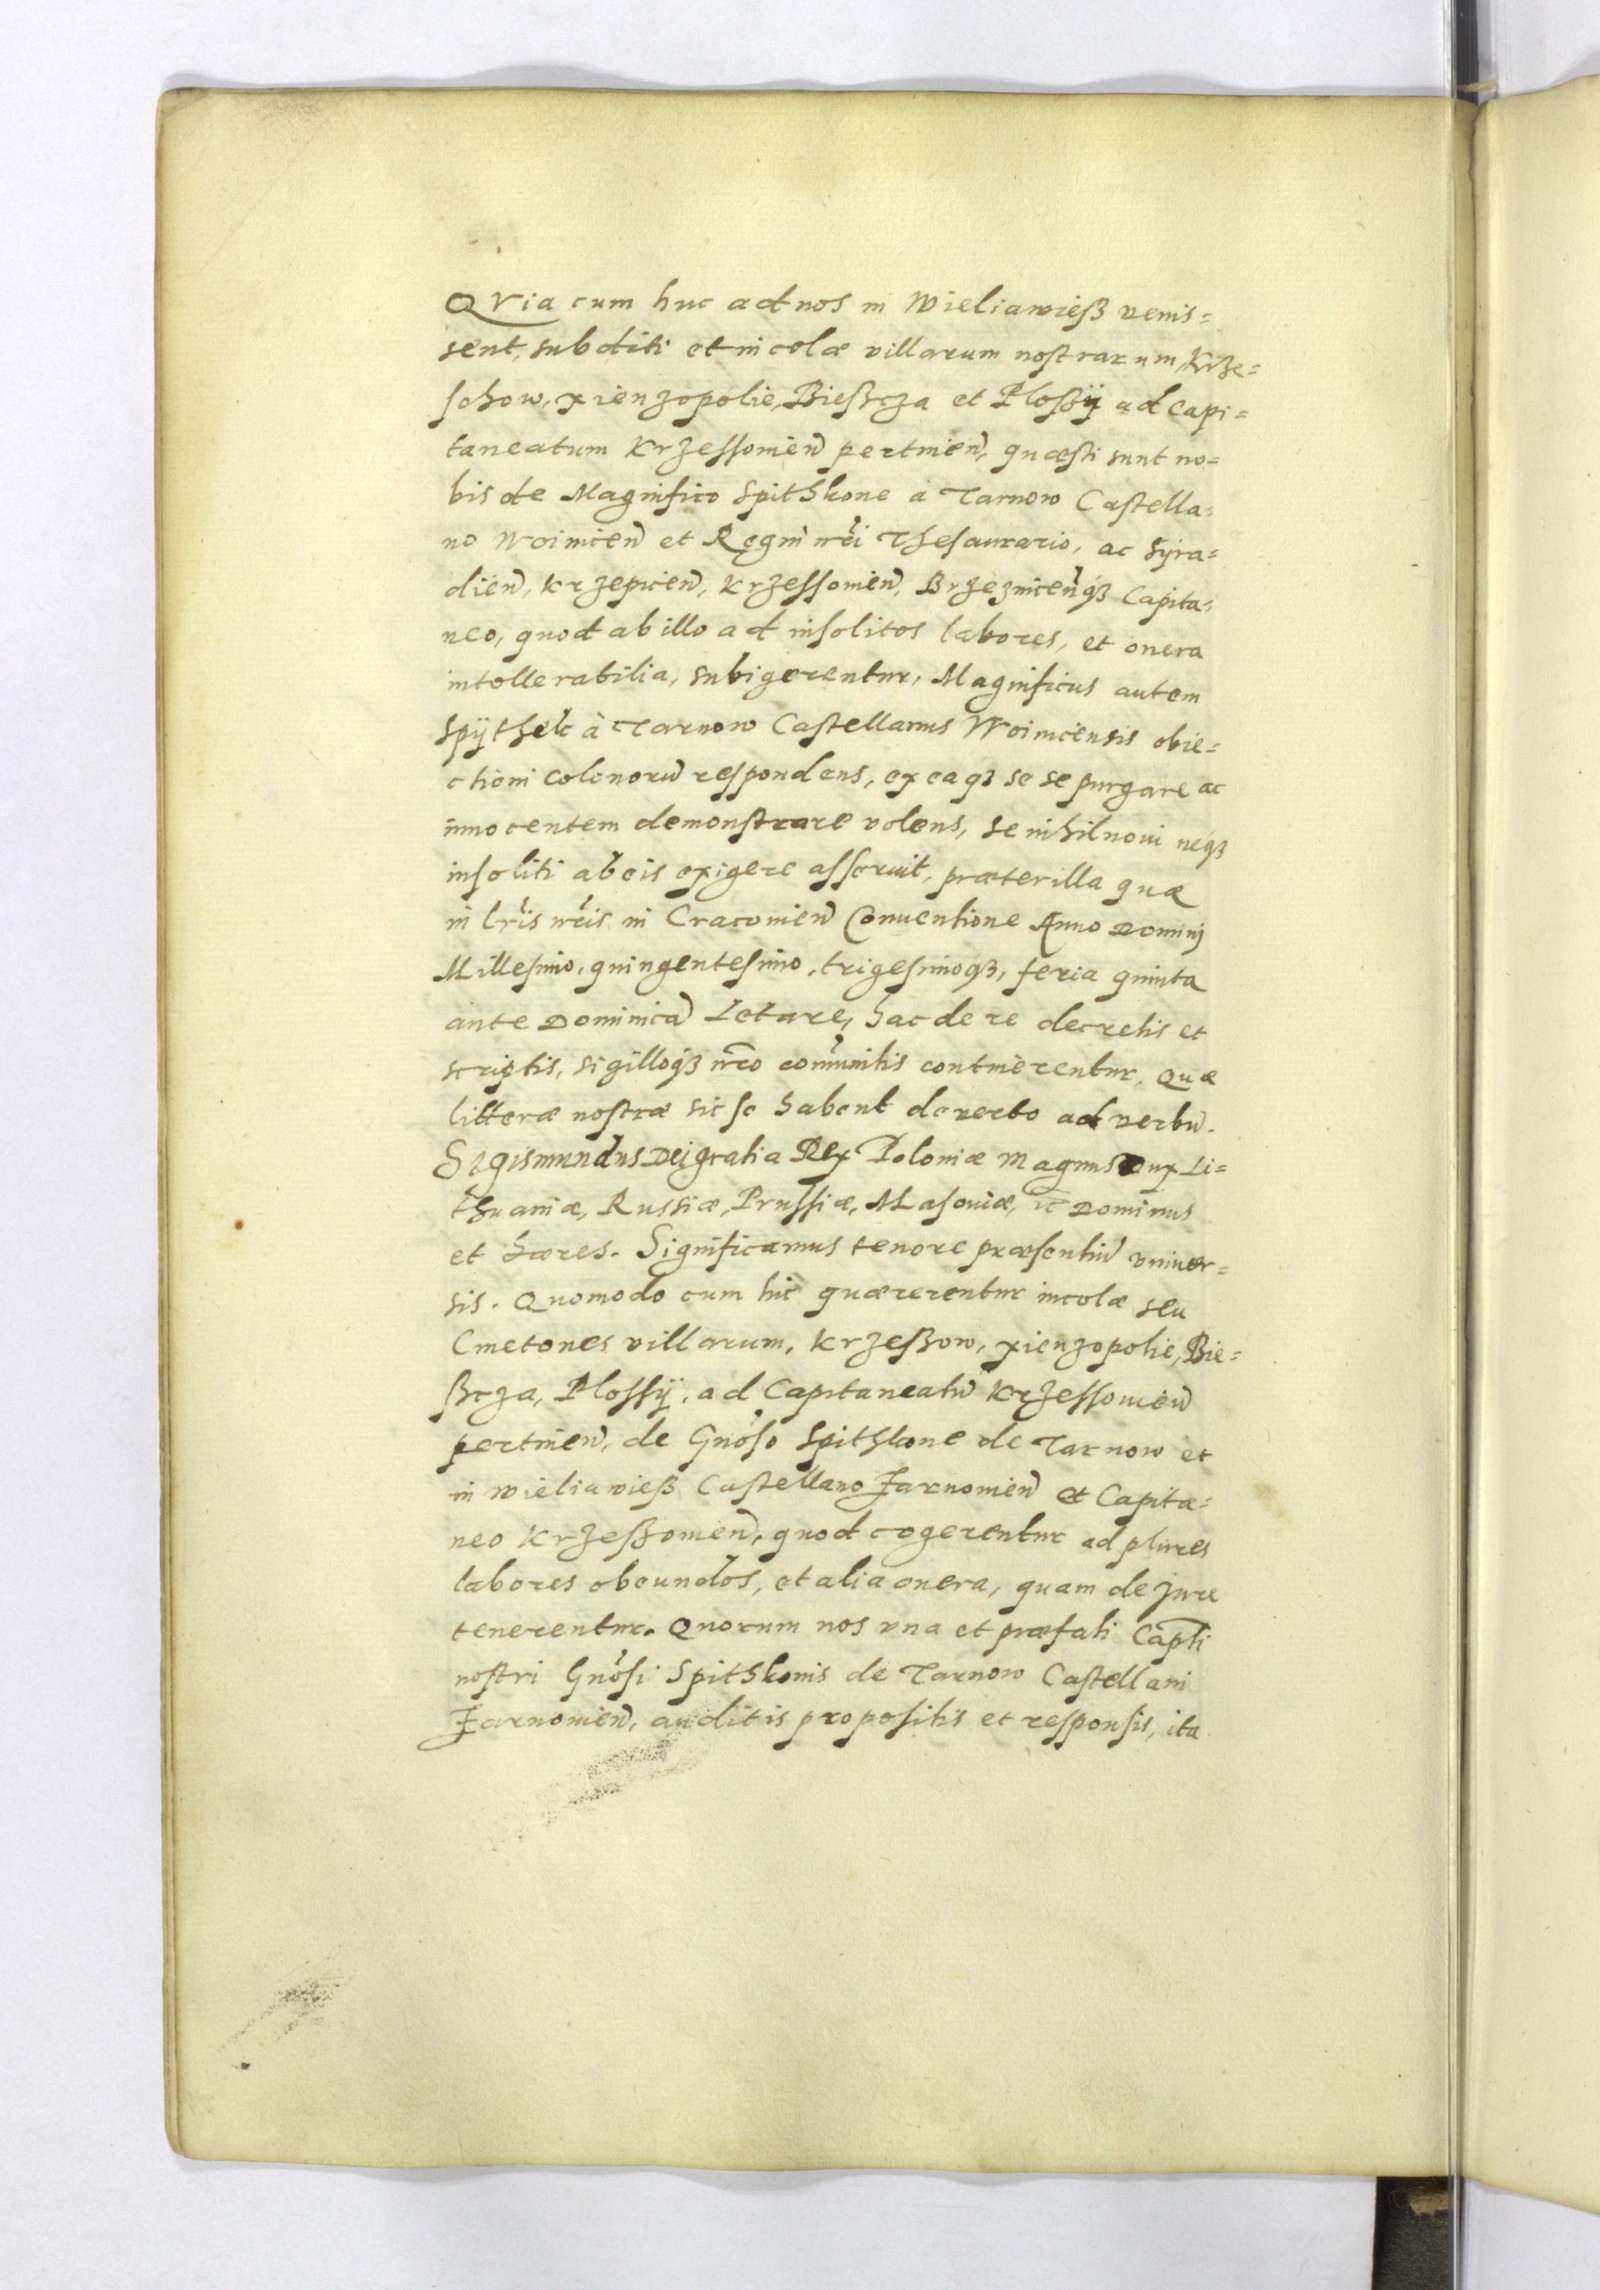 QVia cum huc ad nos in Wieliawieß venis=
sent, subditi et incolæ villarum nostrarum, Krze=
schow, xienzopolie, Bießcza et Ploßÿ ad Capi=
taneatum Krzessouien̄ pertinen̄, quæsti sunt no=
bis de Magnifico Spithkone à Tarnow Castella=
no Woinicen̄ et Regni nr̄i Thesaurario, ac Syra=
dien̄, Krzepicen̄, Krzessouien̄, Brzeznicen̄qȝ Capita=
neo, quod ab illo ad insolitos labores, et onera
intollerabilia, subigerentur, Magnificus autem
Spÿthek à Tarnow Castellanus Woinicensis obie=
ctioni colonorū respondens, ex eaqȝ se se purgare ac
innocentem demonstrare volens, se nihil noui neqȝ
insoliti ab eis exigere asseruit, præter illa quæ
in lr̄is nr̄is in Cracouien̄ Conuentione Anno Dominj
Millesimo, quingentesimo, trigesimoqȝ, feria quinta
ante Dominicā Letare, hac de re decretis et
scriptis, sigilloqȝ nr̄o com̄unitis continerentur, Quæ
litteræ nostræ sic se habent de verbo ad verbū.
Sigismundus Dej gratia Rex Poloniæ Magnus Dux Li=
thuaniæ, Russiæ, Prussiæ, Masouiæ, &c Dominus
et hæres. Significamus tenore præsentiū vniuer=
sis. Quomodo cum hic quærerentur incolæ seu
Cmetones villarum, Krzeßow, xienzopolie, Bie=
ßcza, Plossÿ, ad Capitaneatū Krzessouien̄
pertinen̄, de Gn̄oso Spithkone de Tarnow et
in wieliawieß Castellano Zarnouien̄ et Capita=
neo Krzeßouien̄, quod cogerentur ad plures
labores obeundos, et alia onera, quam de jure
tenerentur. Quorum nos vna et præfati Cap̄ti
nostri Gn̄osi Spithkonis de Tarnow Castellani
Zarnouien̄, auditis propositis et responsis, ita